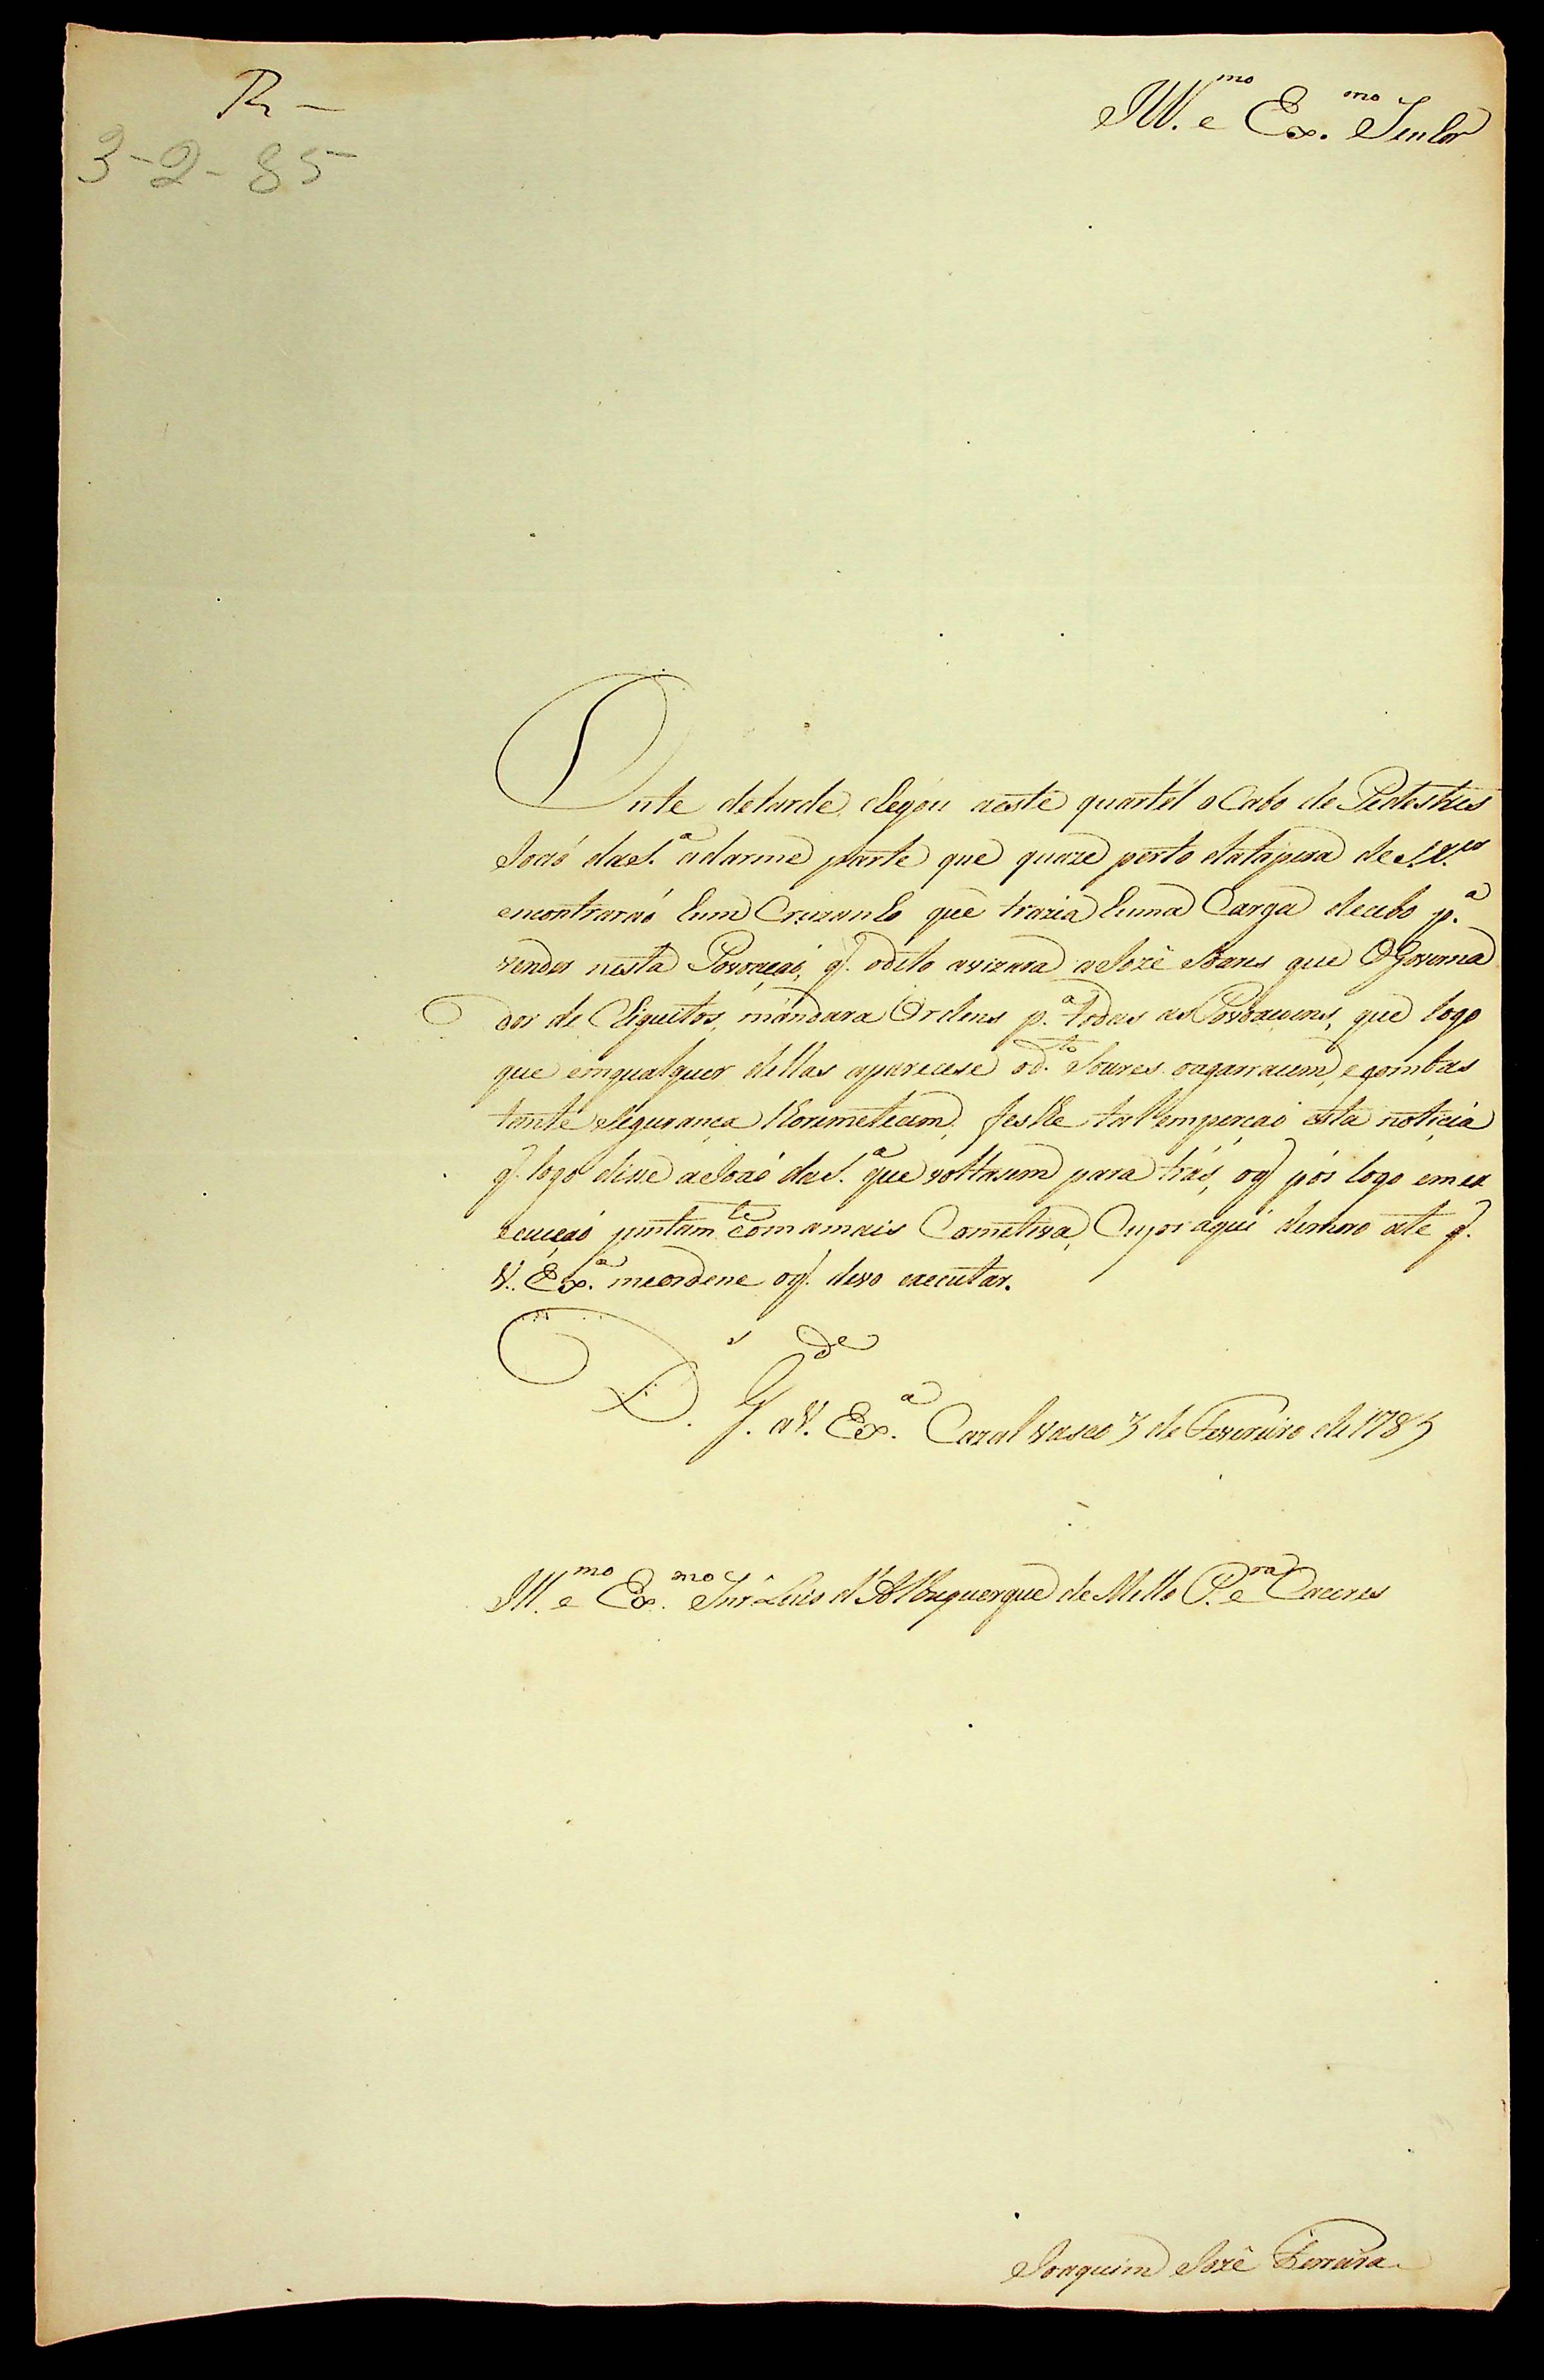 R -
3-2-85
Ill.mo e Ex.mo Senhor
Onte detarde chegou aeste quartel o Cabo de Pedestres
Joaõ daS.a adarme parte que quaze perto datapera de
encontraraõ hum Cruzanho que trazia huma Carga decebo p.a
vender nesta Povoaçaõ, q. odito avizara aJozê Soares que OGoverna
dor de Chiquitos, mandara Ordens p.a todas as Povoaçoens, que logo
que emqualquer dellas aparecese od.to Soares oagarracem, ecombas
tante Segurança lhoremetecem, feslhe tal empreçaõ esta noticia
q. logo disse aJoaõ daS.a que voltasem para trás, oq pôs logo em ex
ecuçaõ juntam.te comamais Cometiva, Cujos aqui demoro ate q.
V. Ex.a meordene oq. devo executar.
D.s G.de aV. Ex.a Cazalvasco 3 de Fevereiro de 1785
Ill.mo e Ex.mo Snr. Luis d'Albuquerque de Mello P.ra e Caceres
Joaquim Jozê Ferreira